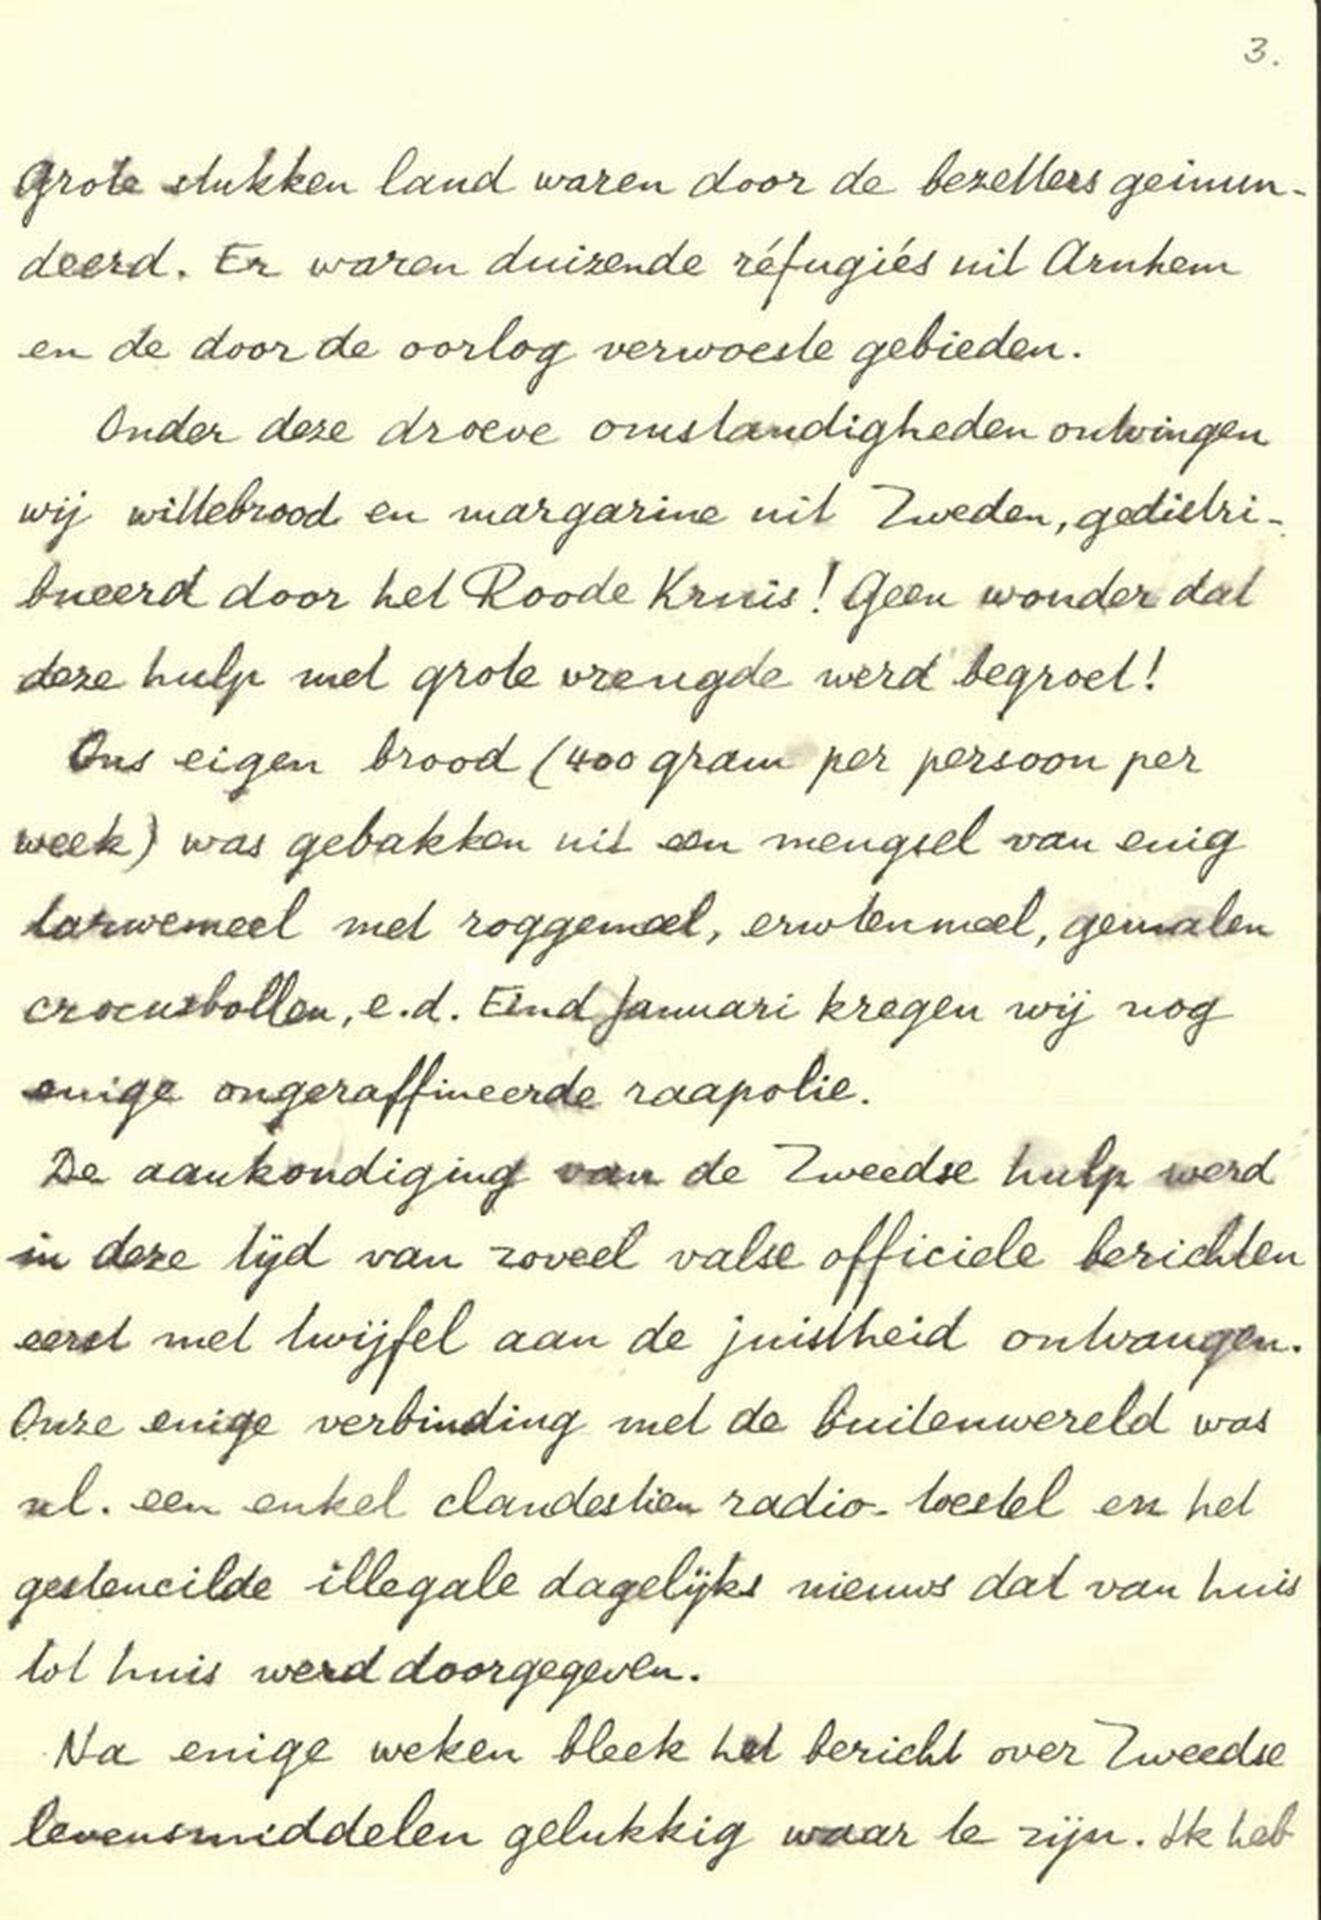 3.
Grote stukken land waren door de bezetters geinun-
deerd. Er waren duizende réfugiés uit Arnhem
en de door de oorlog verwoeste gebieden.
Onder deze droeve omstandigheden ontvingen
wij wittebrood en margarine uit Zweden, gedistri-
bueerd door het Roode Kruis! Geen wonder dat
deze hulp met grote vreugde werd begroet!
Ons eigen brood (400 gram per persoon per
week) was gebakken uit een mengsel van enig
tarwemeel met roggemeel, erwtenmeel, gemalen
crocusbollen, e.d. Eind Januari kregen wij nog
enige ongeraffineerde raapolie.
De aankondiging van de Zweedse hulp werd
in deze tijd van zoveel valse officiele berichten
eerst met twijfel aan de juistheid ontvangen.
Onze enige verbinding met de buitenwereld was
nl. een enkel clandestien radio-toestel en het
gestencilde illegale dagelijks nieuws dat van huis
tot huis werd doorgegeven.
Na enige weken bleek het bericht over Zweedse
levensmiddelen gelukkig waar te zijn. Ik heb